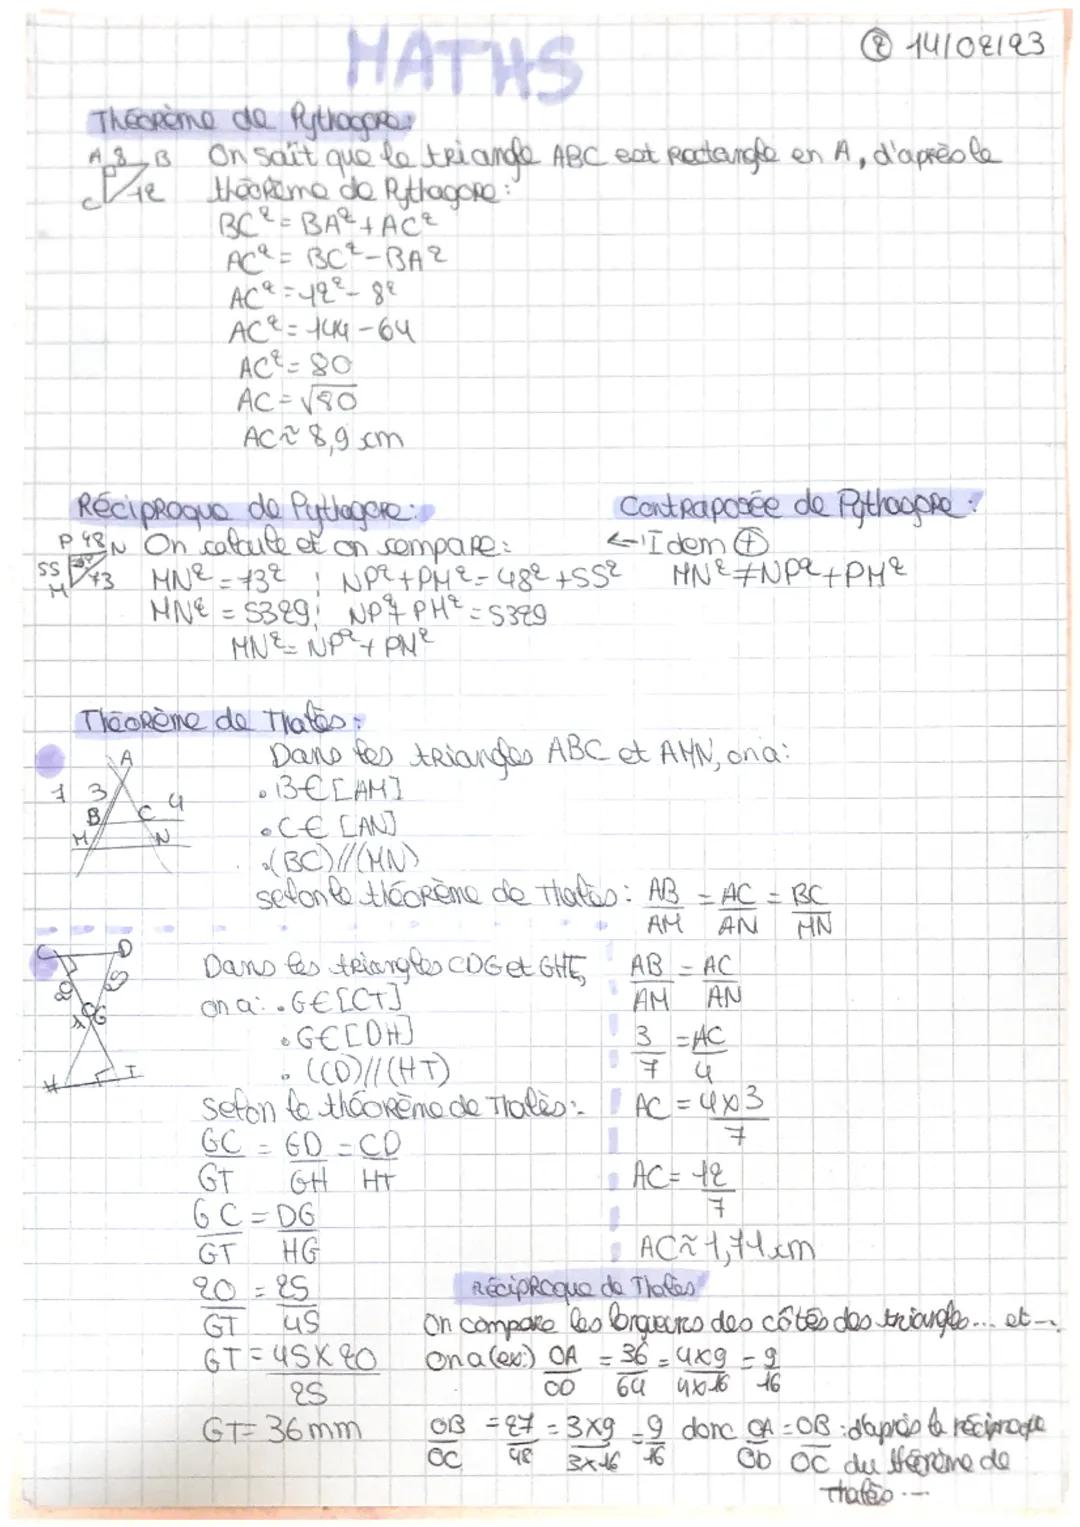 MATHS
② 14/02/23
Théorème de Pythagore:
A 8 B
C 12
On sait que le triangle ABC est rectangle en A, d'après le
théorème de Pythagore:
BC² = BA² + AC²
AC² = BC² - BA²
AC² = 12² - 8²
AC² = 144 - 64
AC² = 80
AC = √80
AC ≈ 8,9 cm
Réciproque de Pythagore:
Contraposée de Pythagore:
P 48 N
55 73
M
On calcule et on compare:
← Idem ⊕
MN² = 73² ; NP² + PM² = 48² + 55²
MN² ≠ NP² + PM²
MN² = 5329; NP² + PM² = 5329
MN² = NP² + PN²
Théorème de Thalès:
A
7 3
B C 4
M N
Dans les triangles ABC et AMN, on a:
• B ∈ [AM]
• C ∈ [AN]
• (BC) // (MN)
selon le théorème de Thalès: AB/AM = AC/AN = BC/MN
C D
G
H T
Dans les triangles CDG et GHT,
on a: • G ∈ [CT]
• G ∈ [DH]
• (CD) // (HT)
Selon le théorème de Thalès:
GC/GT = GD/GH = CD/HT
GC/GT = DG/HG
20/GT = 25/45
GT = 45 × 20/25
GT = 36 mm
AB/AM = AC/AN
3/7 = AC/4
AC = 4×3/7
AC = 12/7
AC ≈ 1,71 cm
Réciproque de Thalès
On compare les longueurs des côtés des triangles... et...
on a (ex:) OA/OD = 36/64 = 4×9/4×16 = 9/16
OB/OC = 27/48 = 3×9/3×16 = 9/16 donc OA/OD = OB/OC : d'après la réciproque
du théorème de
Thalès ...